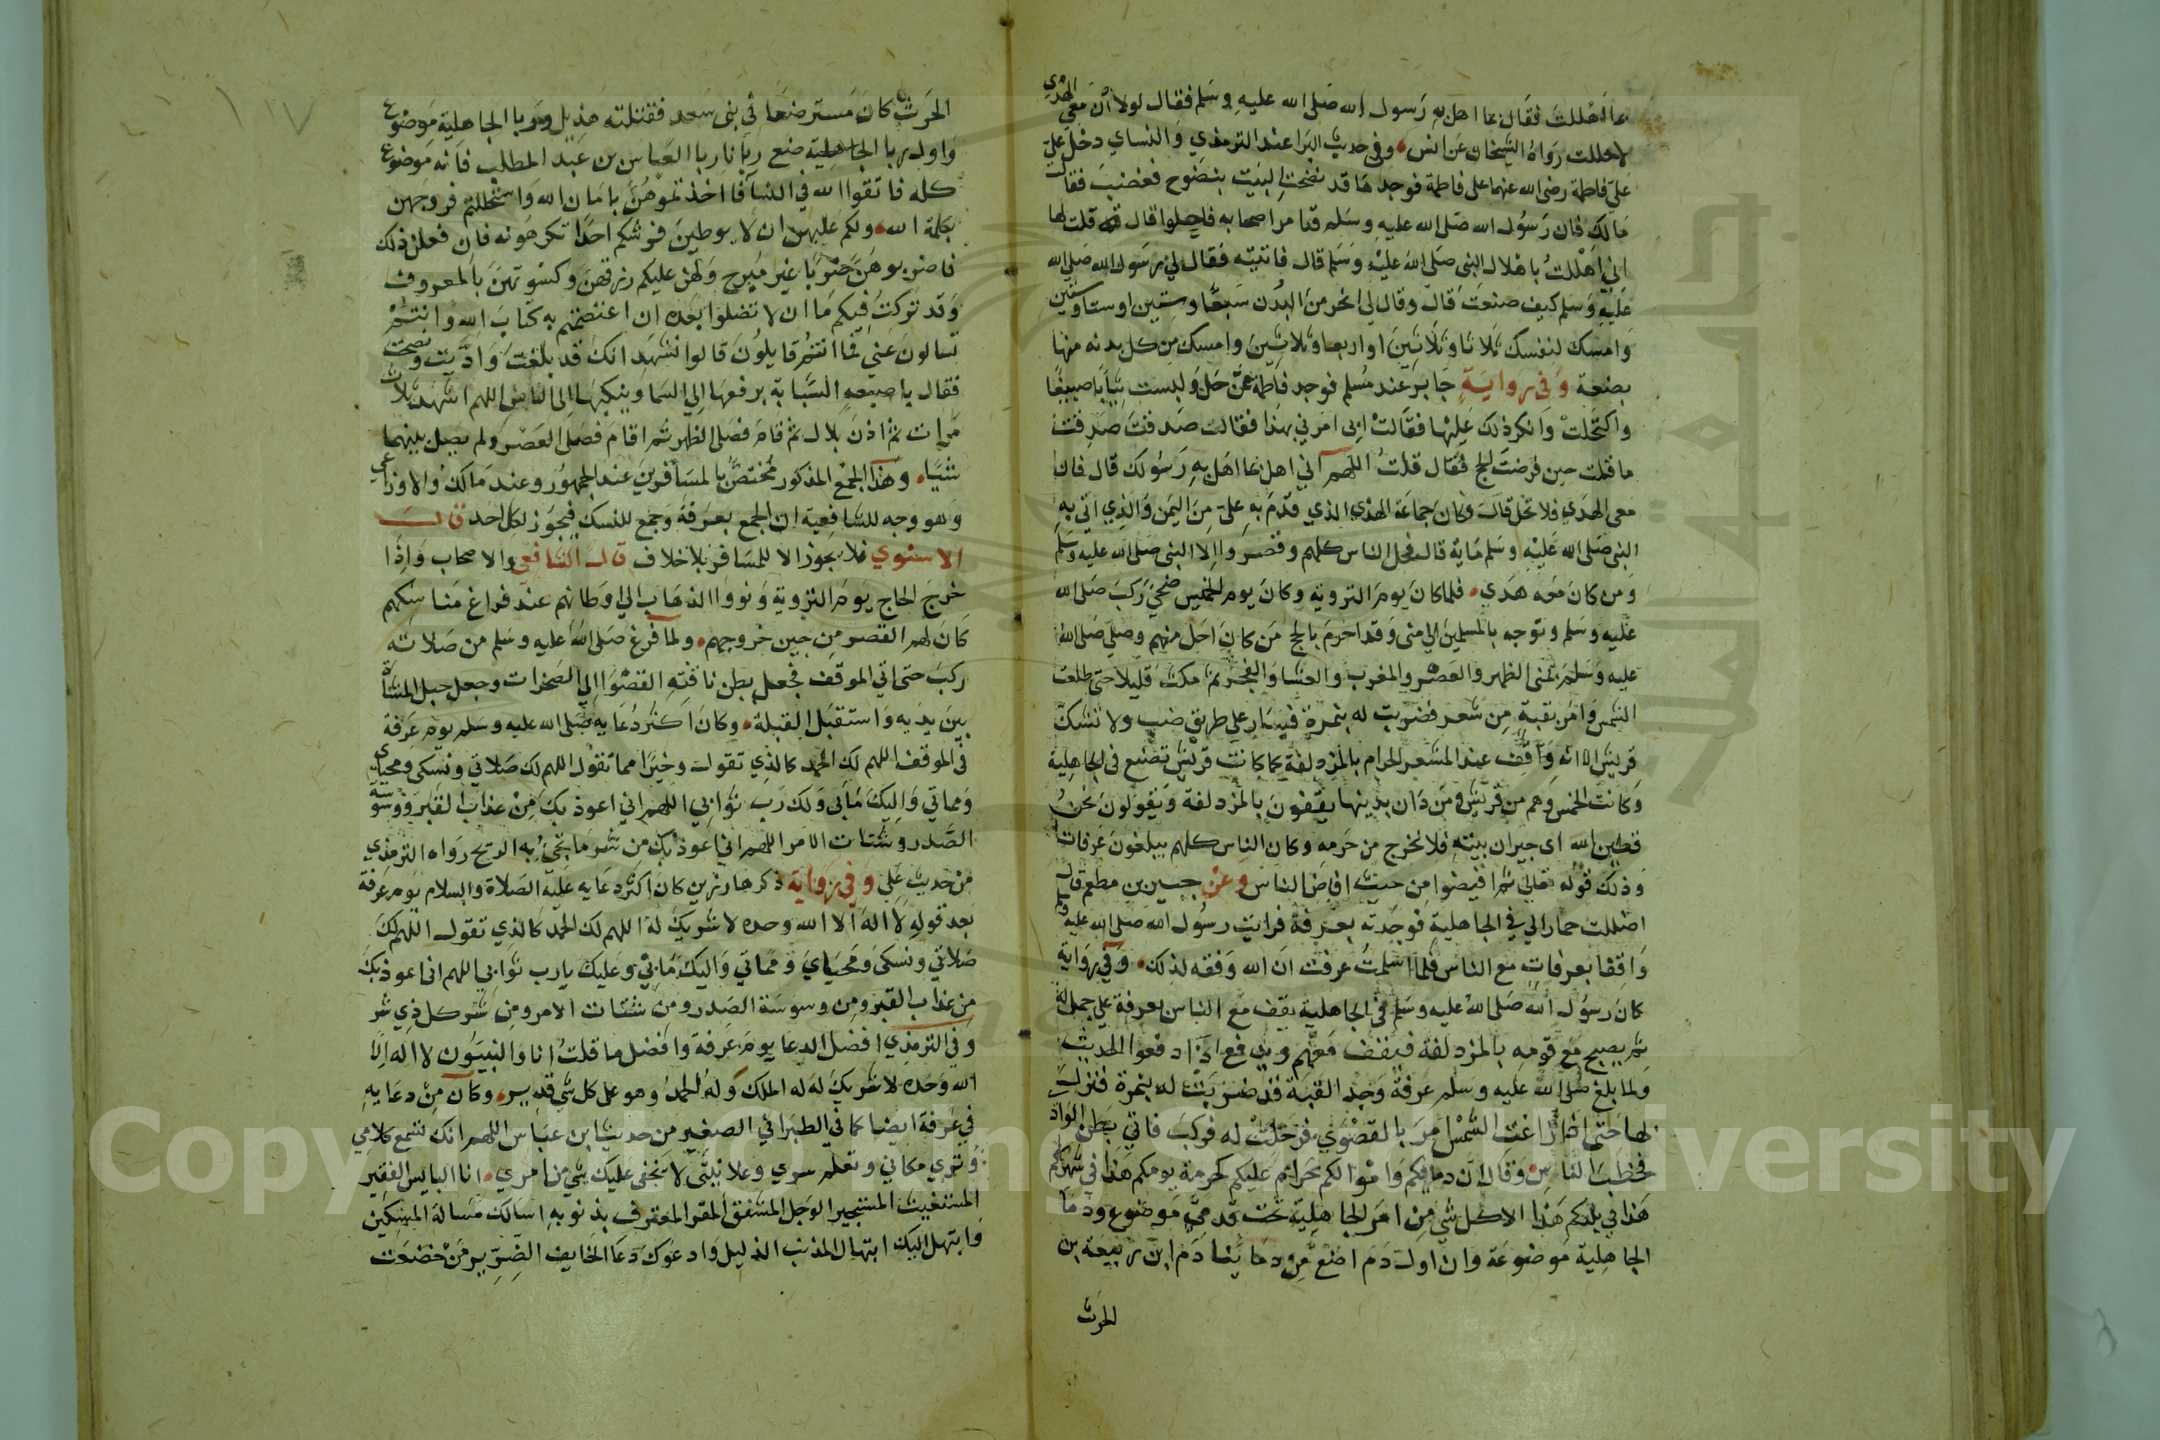 بما اهللت فقال بما اهل به رسول الله صلى الله عليه وسلم فقال لولا أن معي الهدي
لاحللت رواه الشيخان عن انس وفي حديث البرا عند الترمذي والنساي دخل علي
على فاطمة رضي الله عنهما على فاطمة فوجدها قد نضحت البيت بنضوح فغضب فقالت
مالك فان رسول الله صلى الله عليه وسلم قد امر اصحابه فاحلوا قال قلت لها
اني اهللت باهلال النبي صلى الله عليه وسلم قال فاتيته فقال لي رسول الله صلى الله
عليه وسلم كيف صنعت قال وقال لي انحر من البدن سبعا وستين او ستا وستين
وامسك لنفسك ثلاثا وثلاثين او اربعا وثلاثين وامسك من كل بدنه منها
بضعة وفي رواية جابر عند مسلم فوجد فاطمة ممن حل ولبست ثيابا صبيغا
واكتحلت وانكر ذلك عليها فقالت ابي امرني بهذا فقالت صدقت صدقت
ما قلت حين فرضت الحج فقال قلت اللهم اني اهل بما اهل به رسولك قال فان
معي الهدي فلا تحل قال وكان جماعة الهدي الذي قدم به علي من اليمن والذي اتى به
النبي صلى الله عليه وسلم ماية قال فحل الناس كلهم وقصروا الا النبي صلى الله عليه وسلم
ومن كان معه هدي فلما كان يوم التروية وكان يوم الخميس ضحي ركب صلى الله
عليه وسلم وتوجه بالمسلمين الى منى وقد احرم بالحج من كان احل منهم وصلى صلى الله
عليه وسلم بمنى الظهر والعصر والمغرب والعشا والفجر ثم مكث قليلا حتى طلعت
الشمس وامر بقبة من شعر فضربت له بنمرة فسار على طريق ضب ولا تشك
قريش الا انه واقف عند المشعر الحرام بالمزدلفة كما كانت قريش تصنع في الجاهلية
وكانت الحمس وهم من قريش ومن دان بدينها يقفون بالمزدلفة ويقولون نحن
قطين الله اى جيران بيته فلا نخرج من حرمه وكان الناس كلهم يبلغون عرفات
وذلك قوله تعالى ثم افيضوا من حيث افاض الناس وعن جبير بن مطعم قال
اضللت حمارا لي في الجاهلية فوجدته بعرفة فرايت رسول الله صلى الله عليه وسلم
واقفا بعرفات مع الناس فلما اسلمت عرفت ان الله وفقه لذلك وفي رواية
كان رسول الله صلى الله عليه وسلم في الجاهلية يقف مع الناس بعرفة على جمل له
ثم يصبح مع قومه بالمزدلفة فيقف معهم ويدفع اذا دفعوا الحديث
ولما بلغ صلى الله عليه وسلم عرفة وجد القبة قد ضربت له بنمرة فنزل
بها حتى اذا زاغت الشمس امر بالقصوى فرحلت له فركب فاتى بطن الوادي
فخطب الناس وقال ان دماكم واموالكم حرام عليكم كحرمة يومكم هذا في شهركم
هذا في بلدكم هذا الا كل شي من امر الجاهلية تحت قدمي موضوع ودما
الجاهلية موضوعة وان اول دم اضع من دماينا دم ابن ربيعة بن
الحرث
الحرث كان مسترضعا في بني سعد فقتلته هذيل وربا الجاهلية موضوع
واول ربا الجاهلية ضع ربانا ربا العباس بن عبد المطلب فانه موضوع
كله فاتقوا الله في النسا فا اخذتموهن بامان الله واستحللتم فروجهن
بكلمة الله ولكم عليهن ان لا يوطين فرشكم احدا تكرهونه فان فعلن ذلك
فاضربوهن ضربا غير مبرح ولهن عليكم رزقهن وكسوتهن بالمعروف
وقد تركت فيكم ما ان لا تضلوا بعده ان اعتصمتم به كتاب الله وانتم
تسالون عني فما انتم قايلون قالوا نشهد انك قد بلغت واديت ونصحت
فقال باصبعه السبابة يرفعها الي السما وينكبها الى الناس اللهم اشهد ثلاث
مرات ثم اذن بلال ثم قام فصلى الظهر ثم اقام فصلى العصر ولم يصل بينهما
شيا وهذا الجمع المذكور مختص بالمسافرين عند الجمهور وعند مالك والاوزاعي
وهو وجه للشافعية ان الجمع بعرفة وجمع للنسك فيجوز لكل احد قال
الاسنوي فلا يجوز الا للمسافر بلا خلاف قال الشافعي والاصحاب واذا
خرج الحاج يوم التروية ونووا الذهاب الي اوطانهم عند فراغ مناسكهم
كان لهم القصر من حين خروجهم ولما فرغ صلى الله عليه وسلم من صلاته
ركب حتى اتى الموقف فجعل بطن ناقته القصوا الى الصخرات وجعل حبل المشاة
بين يديه واستقبل القبلة وكان اكثر دعايه صلى الله عليه وسلم يوم عرفة
في الموقف اللهم لك الحمد كالذي تقول وخيرا مما تقول اللهم لك صلاتي ونسكي ومحياي
ومماتي واليك مابي ولك رب تراثي اللهم اني اعوذ بك من عذاب القبر ووسوسة
الصدر وشتات الامر اللهم اني اعوذ بك من شر ما تجي به الريح رواه الترمذي
من حديث علي وفي رواية ذكرها رزين كان اكثر دعايه عليه الصلاة والسلام يوم عرفة
بعد قوله لا اله الا الله وحده لا شريك له اللهم لك الحمد كالذي تقول اللهم لك
صلاتي ونسكي ومحياي ومماتي واليك مابي وعليك يارب ثوابي اللهم اني اعوذ بك
من عذاب القبر ومن وسوسة الصدر ومن شتات الامر ومن شر كل ذي شر
وفي الترمذي افضل الدعا يوم عرفة وافضل ما قلت انا والنبيون لا اله الا
الله وحده لا شريك له له الملك وله الحمد وهو على كل شي قدير وكان من دعايه
في عرفة ايضا كما في الطبراني الصغير من حديث ابن عباس اللهم انك تسمع كلامي
وترى مكاني وتعلم سري وعلانيتي لا يخفى عليك شي من امري انا البايس الفقير
المستغيث المستجير الوجل المشفق المقر المعترف بذنوبه اسالك مسالة المسكين
وابتهل اليك ابتهال المذنب الذليل وادعوك دعا الخايف الضرير من خضعت
Copyright © King Saud University